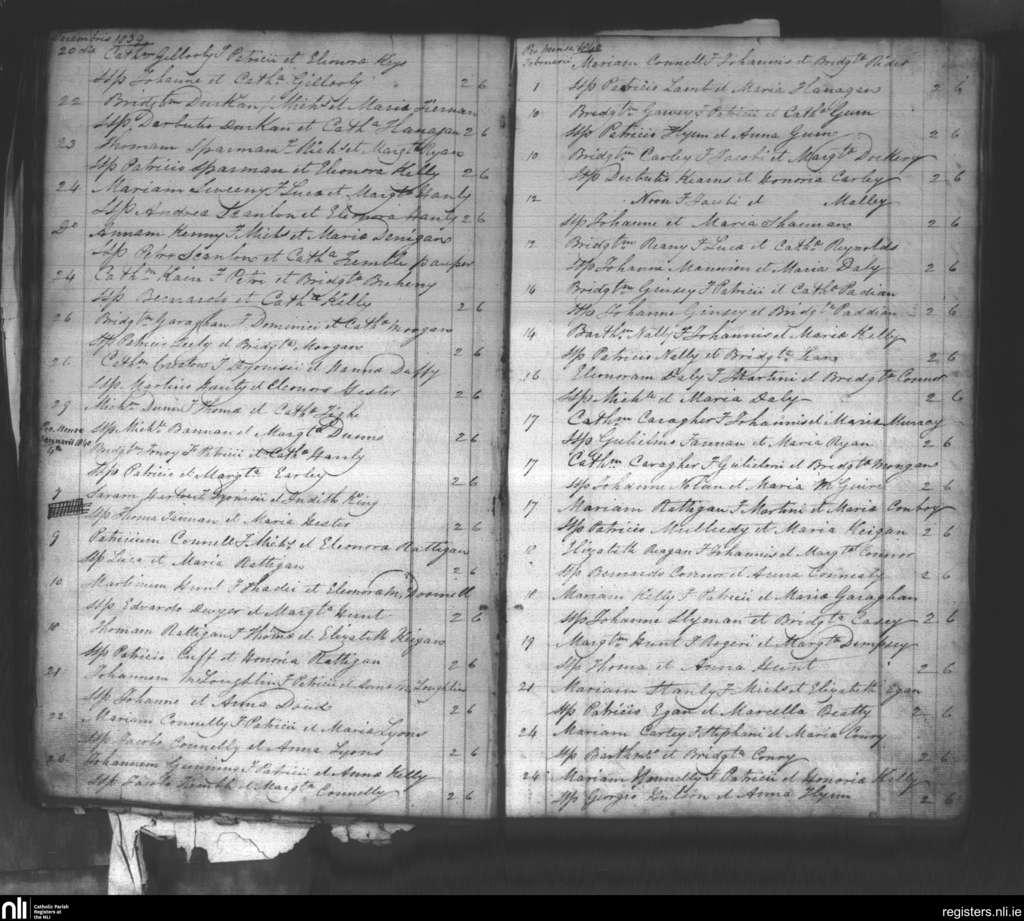 Decembris 1839
20 die Cathm Gillooly F Patricii et Elionora Keys
Ssp Johanne et Catha Gillooly 2 6
22 Bridgtm Durkan F Michs et Maria Kiernan
Ssp Darbutio Durkan et Catha Flanagan 2 6
23 Thomam Sparman F Michs et Margta Ryan
Ssp Patricio Sparman et Eleonora Kelly 2 6
24 Mariam Sweeny F Luca et Margta Hanly
Ssp Andrea Scanlon et Eleonora Hanly 2 6
Do Annam Kenny F Michs et Maria Denigan
Ssp Petro Scanlon et Catha Kemble pauper
24 Cathm Kain F Petri et Bridgta Breheny
Ssp Bernardo et Catha Kelly 2 6
26 Bridgtm Garaghan F Dominici et Catha Morgan
Ssp Patricio Seely et Bridgta Morgan 2 6
26 Cathm F Dyonisii et Hanna Duffy
Ssp Martino Hanity et Eleonora Hester 2 6
29 Michm Dunn F Thoma et Catha
Ssp Michs Bannan et Margta Dunne 2 6
Pro Mense Januarii 1840
4th Bridgtm F Patricii et Catha Hanly
Ssp Patricio et Margta Earley 2 6
7 Saram F Dyonisii et Judith King
Ssp Thoma Tannan et Maria Hester 2 6
9 Patricium Connell F Michs et Eleonora Rattigan
Ssp Luca et Maria Rattigan 2 6
10 Martinum Hunt F Thadei et Elenora Mc Donnell
Ssp Edvardo Dwyer et Margta Hunt 2 6
18 Thomam Rattigan F Thoma et Elizabeth Keigan
Ssp Patricio Cuff et Honoria Rattigan 2 6
21 Johannem McLoughlin F Patricii et Anna McLoughlin
Ssp Johanne et Anna Doud 2 6
22 Mariam Connelly F Patricii et Maria Lyons
Ssp Jacobo Connelly et Anna Lyons 2 6
26 Johannem Gunning F Patricii et Anna Kelly
Ssp Jacobo Kemble et Margta Connelly 2 6
Pro Mense 1840
Februarii Mariam Connell F Johannis et Bridgta Rider
1 Ssp Patricio Lamb et Maria Flanagan 2 6
10 Bridgtm F Patricii et Catha Guin
Ssp Patricio Flynn et Anna Guin 2 6
10 Bridgtm Carley F Jacobi et Margta Dockery
Ssp Derbutio Kearns et Honoria Carley 2 6
12 Noon F Jacobi et Malley
Ssp Johanne et Maria Sharman 2 6
12 Bridgtm Reany F Luca et Catha Reynolds
Ssp Johanne Mannion et Maria Daly 2 6
14 Bridgtm Ginsey F Patricii et Catha Padian
Ssp Johanne Ginsey et Bridgta Paddian 2 6
14 Barthm Nally F Johannis et Maria Kelly
Ssp Patricio Nally et Bridgta 2 6
16 Elenoram Daly F Martini et Bridgta Connor
Ssp Michs et Maria Daly 2 6
17 Cathm Caragher F Johannis et Maria Murray
Ssp Gulielmo Tannan et Maria Ryan 2 6
17 Cathm Caragher F Gulielmi et Bridgta Morgan
Ssp Johanne Nolan et Maria McGuire 2 6
17 Mariam Rattigan F Martini et Maria Conboy
Ssp Patricio Mulledy et Maria Keigan 2 6
18 Elizabeth Reagan F Johannis et Margta Connor
Ssp Bernardo Connor et Anna Conneaty 2 6
18 Mariam Kelly F Patricii et Maria Garaghan
Ssp Johanne Slyman et Bridgta Casey 2 6
19 Margtm Hunt F Rogeri et Margta Dempsey
Ssp Thoma et Anna Hunt 2 6
21 Mariam Hanly F Michs et Elizabeth Egan
Ssp Patricio Egan et Marcella Beatty 2 6
24 Mariam Carley F Stephani et Maria Conry
Ssp Barthw et Bridgta Conry 2 6
24 Mariam Connelly F Patricii et Honoria Kelly
Ssp Georgio et Anna Flynn 2 6
nli Catholic Parish
Registers at
the NLI
registers.nli.ie